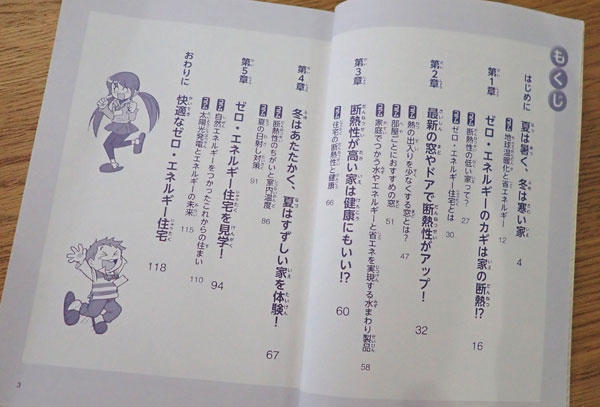 もくじ
はじめに 夏は暑く、冬は寒い家 4
コラム 地球温暖化と省エネルギー 12
第1章 ゼロ・エネルギーのカギは家の断熱!? 16
コラム 断熱性の低い家って? 27
コラム ゼロ・エネルギー住宅とは 30
第2章 最新の窓やドアで断熱性がアップ! 32
コラム 熱の出入りを少なくする窓とは? 47
コラム 部屋ごとにおすすめの窓 51
コラム 家庭でつかう水やエネルギーと省エネを実現する水まわり製品 58
第3章 断熱性が高い家は健康にもいい!? 60
コラム 住宅の断熱性と健康 66
第4章 冬はあたたかく、夏はすずしい家を体験! 67
コラム 断熱性のちがいと室内温度 86
コラム 夏の日射し対策 91
第5章 ゼロ・エネルギー住宅を見学! 94
コラム 自然エネルギーをつかったこれからの住まい 110
コラム 太陽光発電とエネルギーの未来 115
おわりに 快適なゼロ・エネルギー住宅 118
3